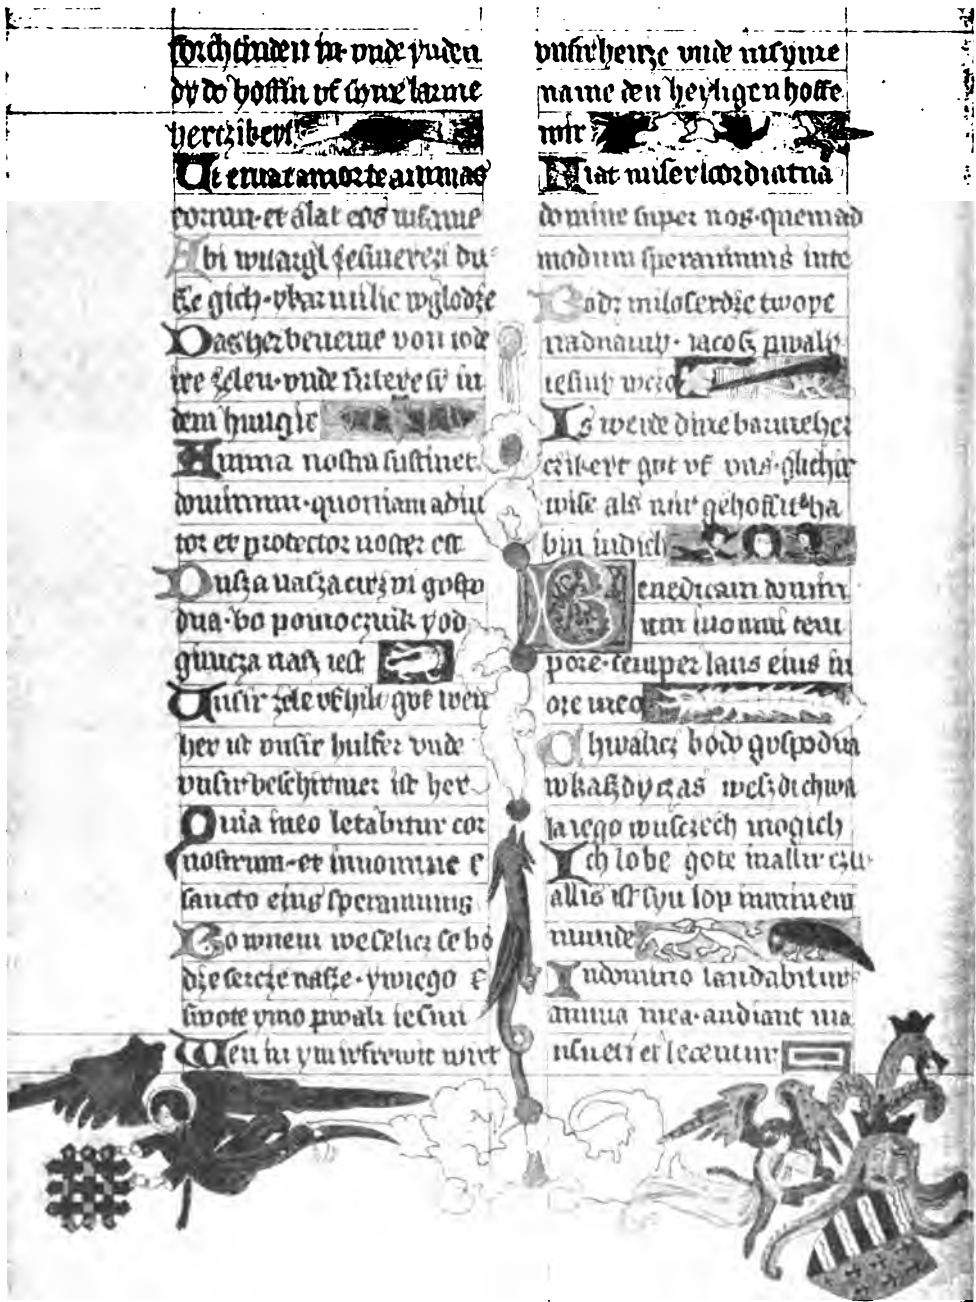 forchtinden in vnde vnden
dy do hoffin vf syne barme
herczikeyt
Ut eruat a morte animas
eorum et alat eos in fame
Abi wuargl gesinerczi du
sze gich ykarmilic wglodze
Das her beneme von tode
ire zelen vnde fuIere sy in
dem hungir
Anima nostra sustinet
dominum quoniam adiu
tor et protector noster est
Dusza nasza czirzpi gospo
dna bo pomocznik y od
gimcza nasz iest
Unsir zele vfhilt got wen
her ist vnsir hulfer vnde
vnsir beschirmer ist her
Quia in eo letabitur cor
nostrum et in nomine
sancto eius sperauimus
Bo w nem weselicz se bo
dze sercze nasze y w iego
swote ymo pwali iesmi
Wen in ym irfrewit wirt
vnsir hercze vnde in syme
name den heyligen hoffe
wir
Fiat misericordia tua
domine super nos quemad
modum sperauimus in te
Bodz miloserdze twoye
nad nami iacosz pwaly
iesmy w czo
Is werde dine barmeher
czikeyt got vf vns glicher
wise als wir gehoffit ha
bin in dich
Benedicam domin
um in omni tem
pore semper laus eius in
ore meo
Chwalicz bodo gospodna
w kaszdy czas weszdi chwa
la iego w usczech mogich
Ich lobe gote in allir czit
allis ist syn lop in minem
munde
In domino laudabitur
anima mea audiant ma
nsueti et letentur